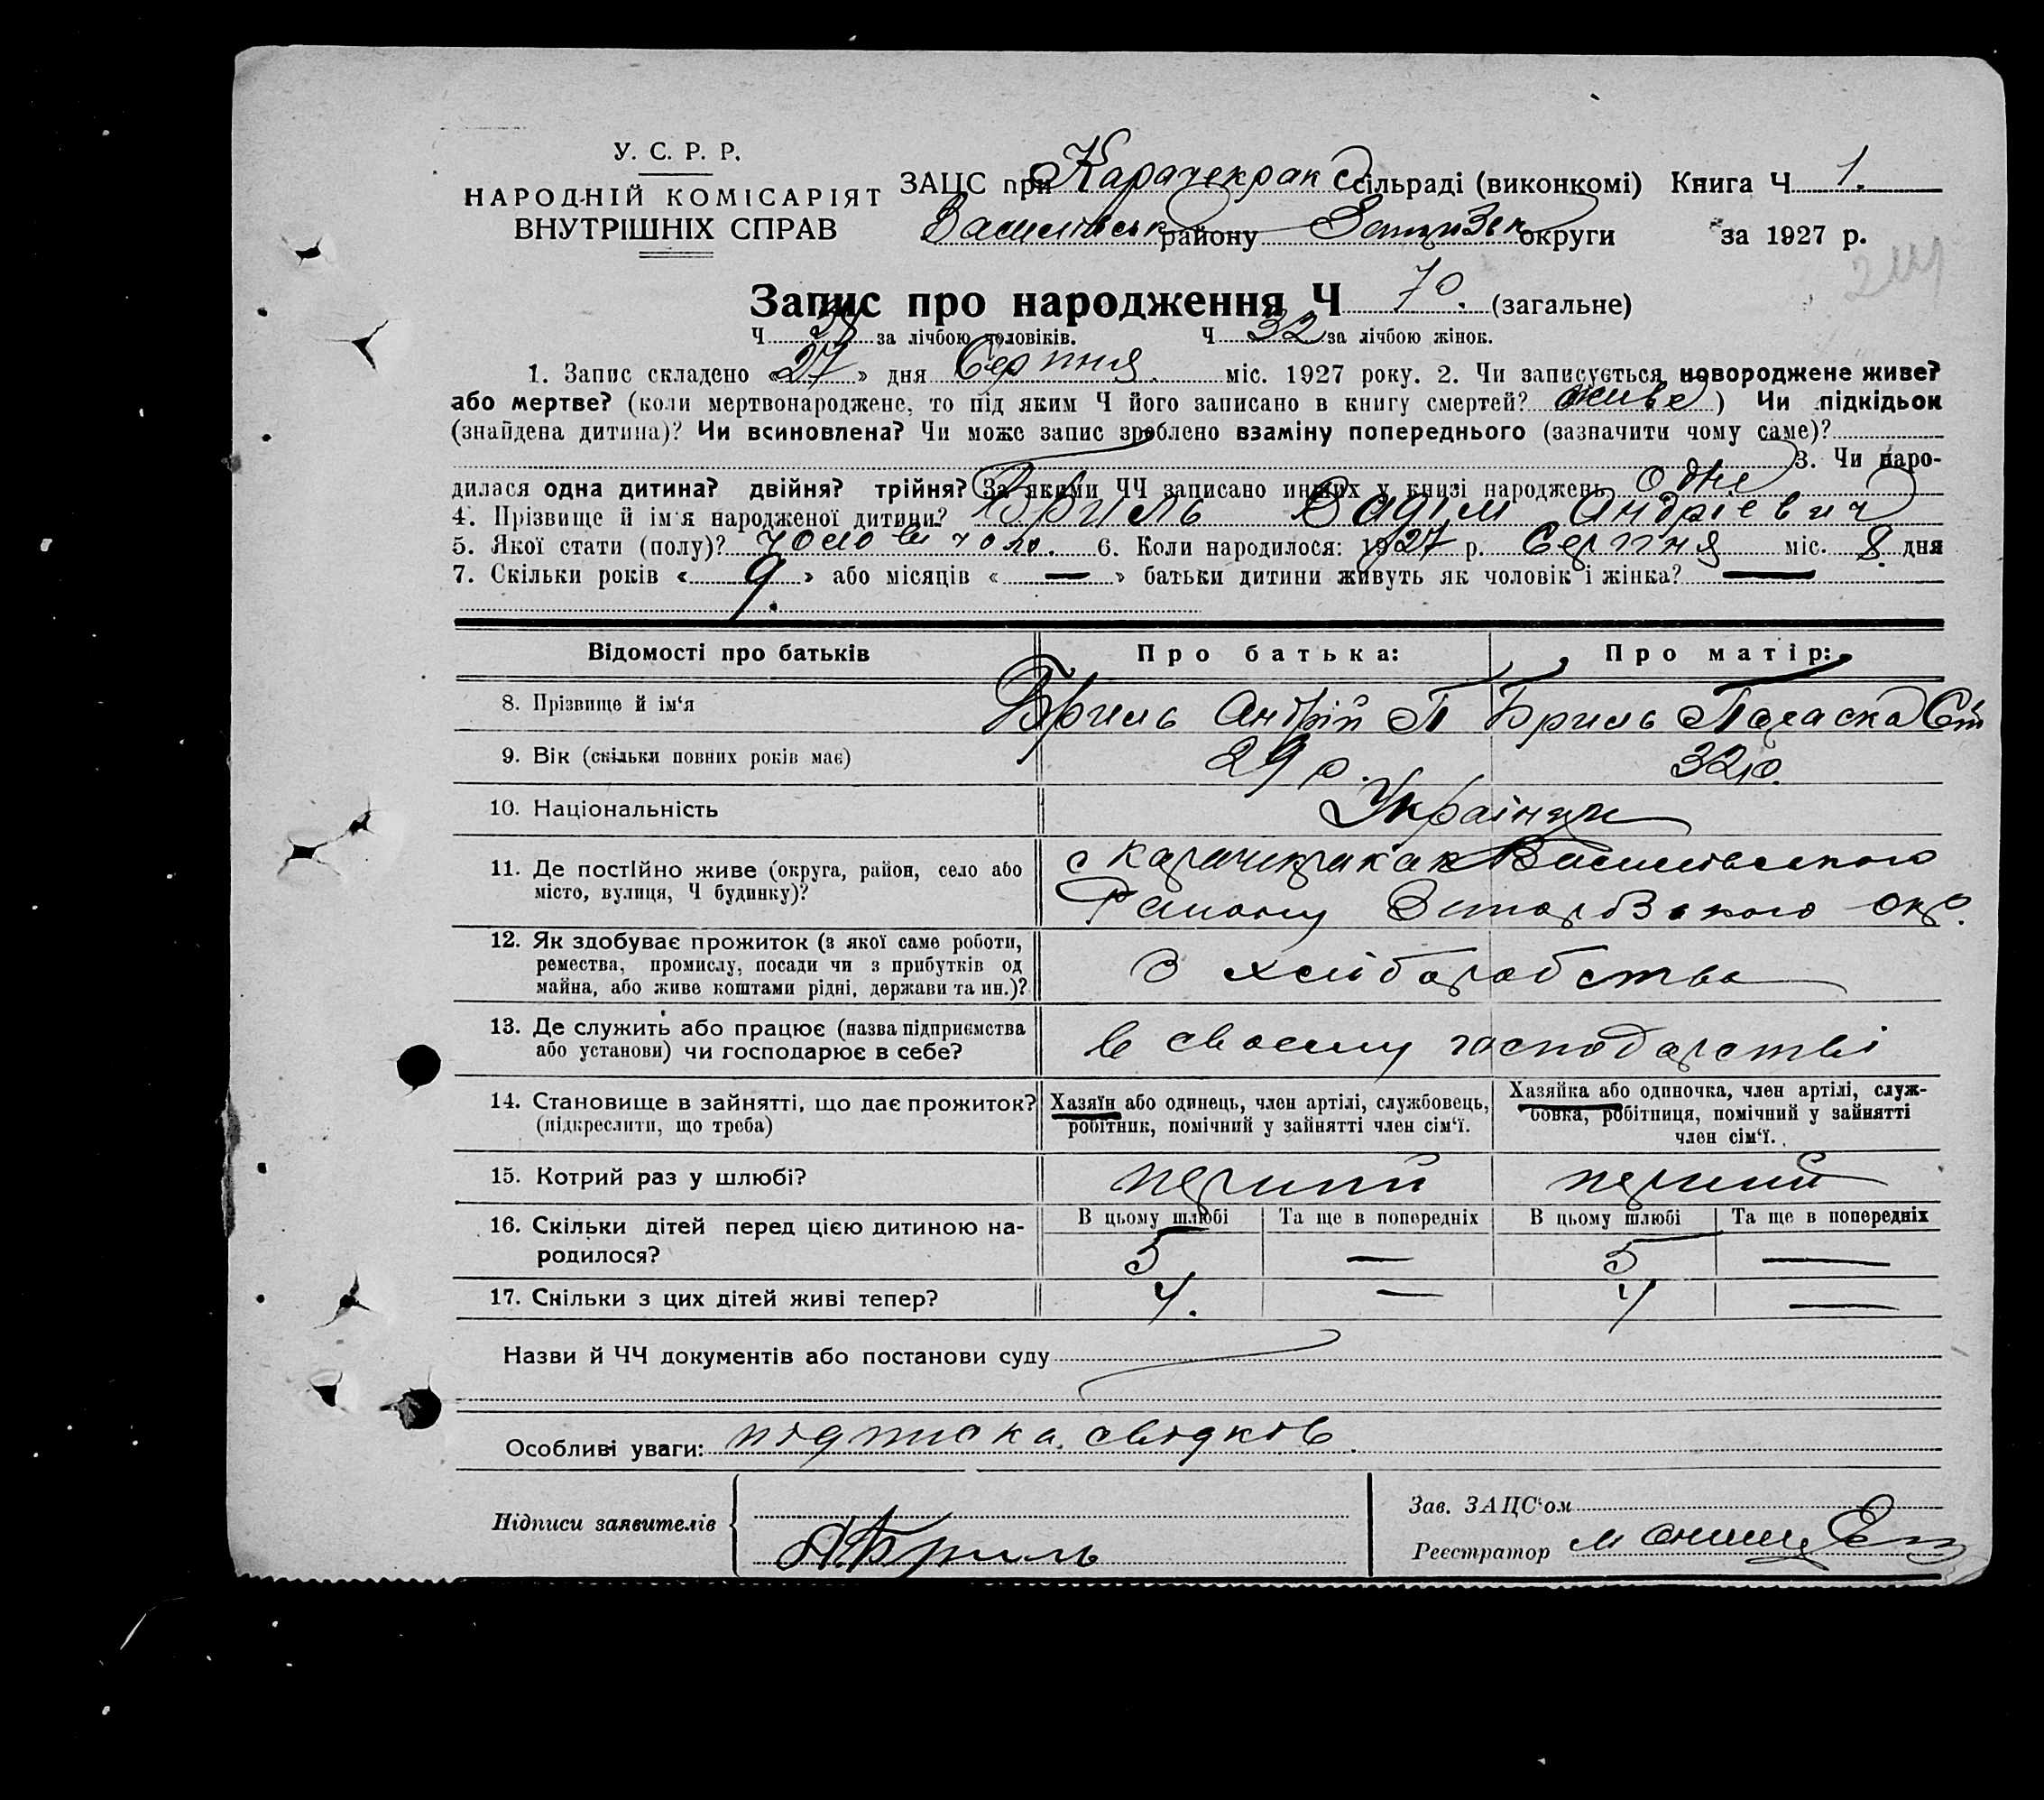 У. С. Р. Р.
НАРОДНІЙ КОМІСАРІЯТ
ВНУТРІШНІХ СПРАВ
ЗАЦС при Карачекрак сільраді (виконкомі) Книга Ч 1.
Василівськ району округи за 1927 р.
Запис про народження Ч 70. (загальне)
Ч за лічбою чоловіків. Ч 32 за лічбою жінок.
1. Запис складено «27» дня Серпня міс. 1927 року. 2. Чи записується новороджене живе?
або мертве? (коли мертвонароджене, то під яким Ч його записано в книгу смертей? живе) Чи підкідьок
(знайдена дитина)? Чи всиновлена? Чи може запис зроблено взаміну попереднього (зазначити чому саме)?
3. Чи наро-
дилася одна дитина? двійня? трійня? За якими ЧЧ записано инших у книзі народжень одне
4. Прізвище й ім'я народженої дитини? Бриль Вадім Андрієвич
5. Якої стати (полу)? 6. Коли народилося: 1927 р. Серпня міс. 8. дня
7. Скільки років «9» або місяців «—» батьки дитини живуть як чоловік і жінка? —
Відомості про батьків Про батька: Про матір:
8. Прізвище й ім'я Бриль Андрій П Бриль Параска Ст
9. Вік (скільки повних років має) 29 р. 32 р.
10. Національність Українци
11. Де постійно живе (округа, район, село або
місто, вулиця, Ч будинку)?
с Василівського
Району окр.
12. Як здобуває прожиток (з якої саме роботи,
ремества, промислу, посади чи з прибутків од
майна, або живе коштами рідні, держави та ин.)?
З хліборобства
13. Де служить або працює (назва підприємства
або установи) чи господарює в себе?
в своему господарстві
14. Становище в зайнятті, що дає прожиток?
(підкреслити, що треба)
Хазяїн або одинець, член артілі, службовець,
робітник, помічний у зайнятті член сім'ї.
Хазяйка або одиночка, член артілі, служ-
бовка, робітниця, помічний у зайнятті
член сім'ї.
15. Котрий раз у шлюбі? перший перший
16. Скільки дітей перед цією дитиною на-
родилося?
В цьому шлюбі Та ще в попередніх В цьому шлюбі Та ще в попередніх
5 — 5 —
17. Скільки з цих дітей живі тепер? 4. — 4 —
Назви й ЧЧ документів або постанови суду
Особливі уваги: підписка свідків.
Підписи заявителів
АБриль
Зав. ЗАЦС'ом
Реєстратор